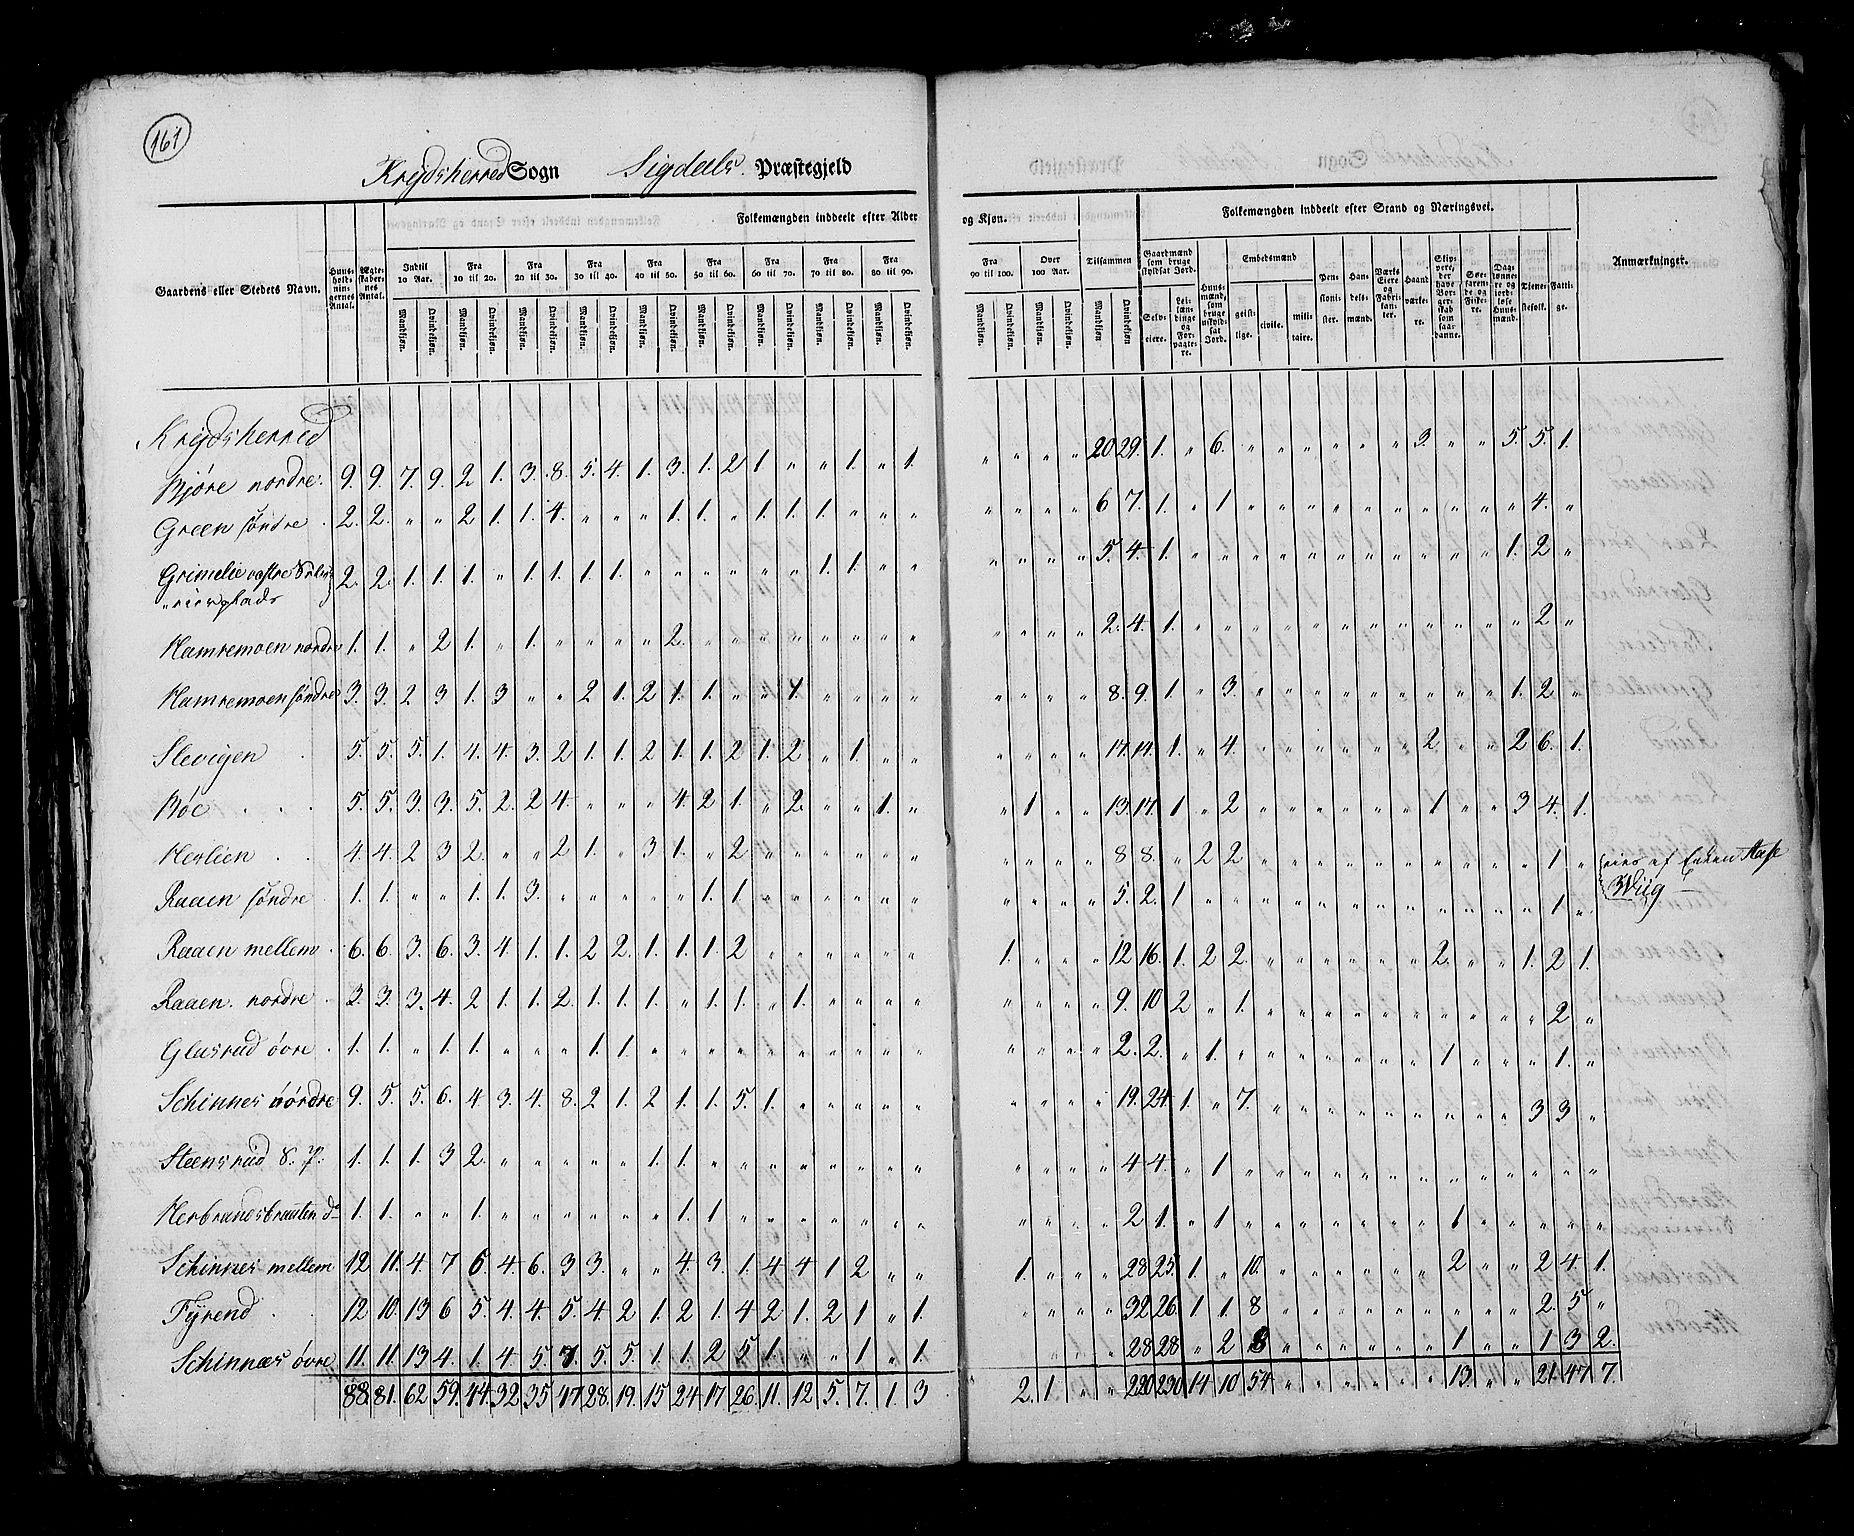 161
Krydsherred Sogn Sigdals Præstegjeld
Gaardens eller Stedets Navn. Huusholdningernes Antal. Ægte-Familiernes Antal. Folkemængden inddeelt efter Alder og Kjøn. Tilsammen Folkemængden inddeelt efter Stand og Næringsvei. Anmærkninger.
Indtil 10 Aar. Fra 10 til 20. Fra 20 til 30. Fra 30 til 40. Fra 40 til 50. Fra 50 til 60. Fra 60 til 70. Fra 70 til 80. Fra 80 til 90. Fra 90 til 100. Over 100 Aar.
Mandkjøn. Qvindekjøn.
Gaardmænd som bruge skyldsat Jord. Selveiere. Leilændinge og Forpagtere. Huusmænd, som bruge uskyldsat Jord. Embedsmænd geistlige. civile. militaire. Pensionister. Handelsmænd. Værks Eiere og Fabrikanter. Haandværkere. Søefarende og Fiskere. Daglønnere og jordløse Huusmænd. Tjenestefolk. Fattige.
Krydsherred
Bjøre nordre. 9. 9. 7. 9. 2 1. 3. 8. 5. 4. 1. 3. 1. 2 1 " " 1. " 1. " " " " 20 29. 1. " 6. " " " " " " 3. " " 5. 5. 1.
Green søndre. 2. 2. " " 2 1. 1. 4. " " " 1. 1. " 1. 1. 1. " " " " " " " 6 7. 1. " 1 " " " " " " " " " " 4. "
Grimelie vestre 2. 2. 1. 1. 1. " 1. 1. 1. 1. " " " " " " 1. 1. " " " " " " 5. 4. 1. " " " " " " " " " " " 1. 2 "
Hamremoen nordre 1. 1. " 2 1. " 1. " " " " 2. " " " " " " " " " " " " 2. 4. 1. " " " " " " " " " " " " 2 "
Hamremoen søndre 3. 3. 2 3 1. 3 " " 2 1. 2 1. 1. " " 1. " " " " " " " " 8. 9. 1. " 3. " " " " " " " " " 1. 2 "
Slevigen 5. 5. 5. 1. 4. 4. 3. 2 1. 1. 2 1. 1. 2 1. 2 " 1. " " " " " " 17. 14. 1. " 4. " " " " " " 2. " " 2 6. 1.
Bøe 5. 5. 3. 3. 5. 2. 2 4. " " " 4. 2 1. " 2. " " 1. " " 1 " " 13. 17. 1 " 2 " " " " " " 1 " " 3 4. 1.
Heslien 4. 4. 2 3 2. " " 2 1. " 3 1. " 2 " " " " " " " " " " 8 8. " 2 2 " " " " " " " " " " 1 "
Raaen søndre 1. 1. " " 1. 1. 3. " " " " " 1. 1 " " " " " " " " " " 5. 2. 1 " " " " " " " " " " " " 1 "
eies af Enken Wiig
Raaen mellem 6. 6. 3. 6. 3. 4. 1. 1. 2 2. 1. 1. 1. 2 " " " " " " 1. " " " 12 16. 1. 2 2. " " " " " " 2. " " 1. 2 1.
Raaen nordre 3. 3. 3. 4. 2 1. 1. 2. 1. 1. 1. " 1. 1. " 1. " " " " " " " " 9. 10 2 " 1. " " " " " " " " " " 2 "
Glasrud øvre 1. 1. " 1. 1. " " " 1. 1. " " " " " " " " " " " " " " 2. 2. " 1 " " " " " " " 1 " " " 1. "
Schinnes nordre 9. 5. 5. 6. 4. 3. 4. 8. 2 1. 2 1. 1. 5. 1. " " " " " " " " " 19. 24. 1. " 7. " " " " " " " " " 3 3. "
Steensrud S. P. 1. 1. 1. 3 2. " " " " " 1. 1. " " " " " " " " " " " " 4 4. " 1 " " " " " " " " " " " " "
Herbrandsbraaten do 1. 1. " " 1. " " " " " " 1. 1. " " " " " " " " " " " 2 1. " 1 " " " " " " " 1 " " " " "
Schinnes mellem 12 11. 4. 7 6. 4. 6. 3 3. " " 4. 3. 1. 4 4 1 2 " " 1. " " " 28 25. 1. " 10. " " " " " " 2 " " 2 4. 1.
Fyrend 12 10. 13 6 5. 4. 4. 5. 4. 2 1. 2 1. 4 2. 1. 2 1 " 1 " " " " 32 26. 1 1. 8 " " " " " " " " " 2. 5 "
Schinnes øvre 11. 11. 13 4. 1. 4 5 7. 5. 5. 1. 1. 2 5. 1. " " 1 " 1. " " " " 28 28. " 2 8 " " " " " " 1 " " 1 3 2.
88. 81. 62 59. 44. 32. 35. 47. 28. 19. 15. 24. 17 26. 11. 12 5. 7. 1. 3 2. 1. " " 220 230 14 10 54 " " " " " " 13. " " 21. 47 7.